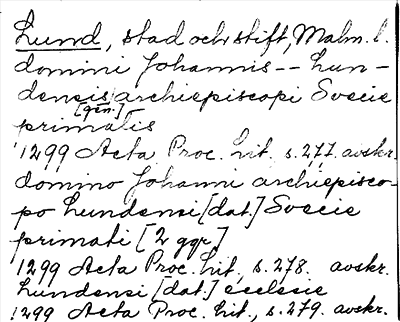 Lund, stad och stift, Malm. l.
domini Johannis -- Lun-
densis archiepiscopi Svecie
[gen.]
primatis
1299 Acta Proc. lit. s. 277. avskr.
domino Johanni archiepisco-
po Lundensi [dat.] Svecie
primati [2 ggr]
1299 Acta Proc. lit., s. 278. avskr.
Lundensi [dat.] ecclesie
1299 Acta Proc. lit., s. 279. avskr.